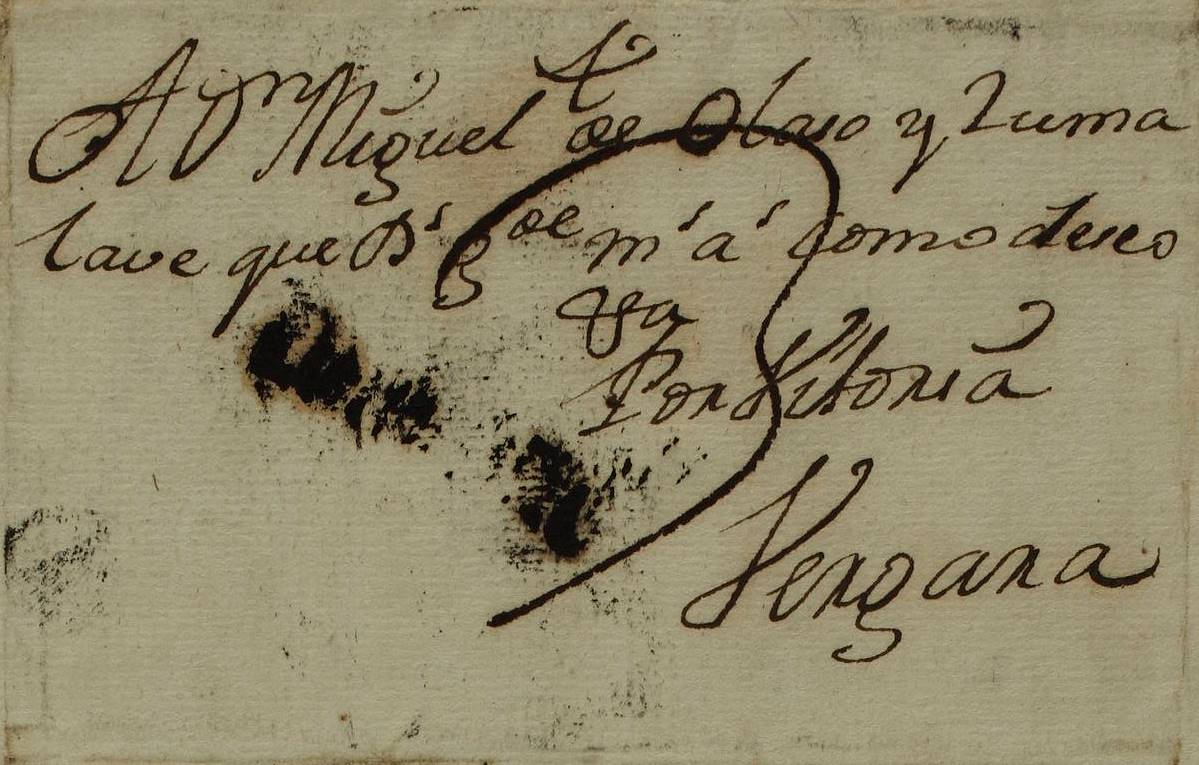 A Dn Miguel de Olaso y Zuma
lave que Ds gde ms as como deseo
Va
Por Vitoria
Vergara